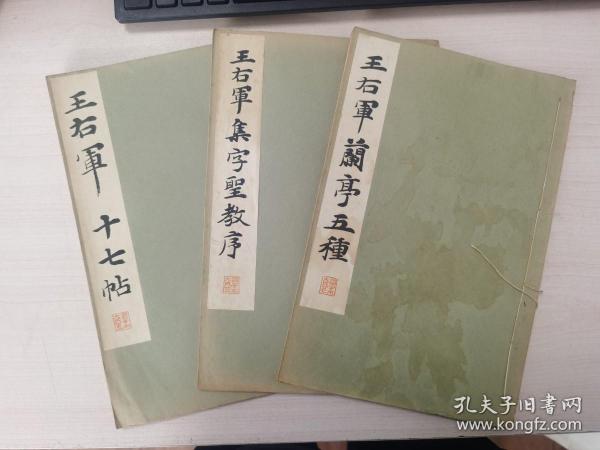 王右軍 十七帖
王右軍集字聖教序
王右軍 蘭亭五種
孔夫子旧書网
www.kongfz.com